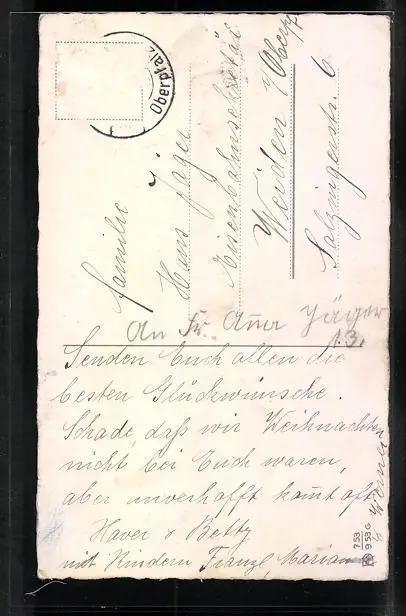 Oberpfalz
Familie
Hans Jäger
Eisenbahnsekretär
Weiden i/Oberpf
Salzingerstr. 6
An Fr. Anna Jäger
1.3.
Senden Euch allen die
besten Glückwünsche.
Schade, daß wir Weihnachten
nicht bei Euch waren,
aber unverhofft kom̅t oft
Xaver & Betty
mit Kindern Franzl, Marian
753
953 G